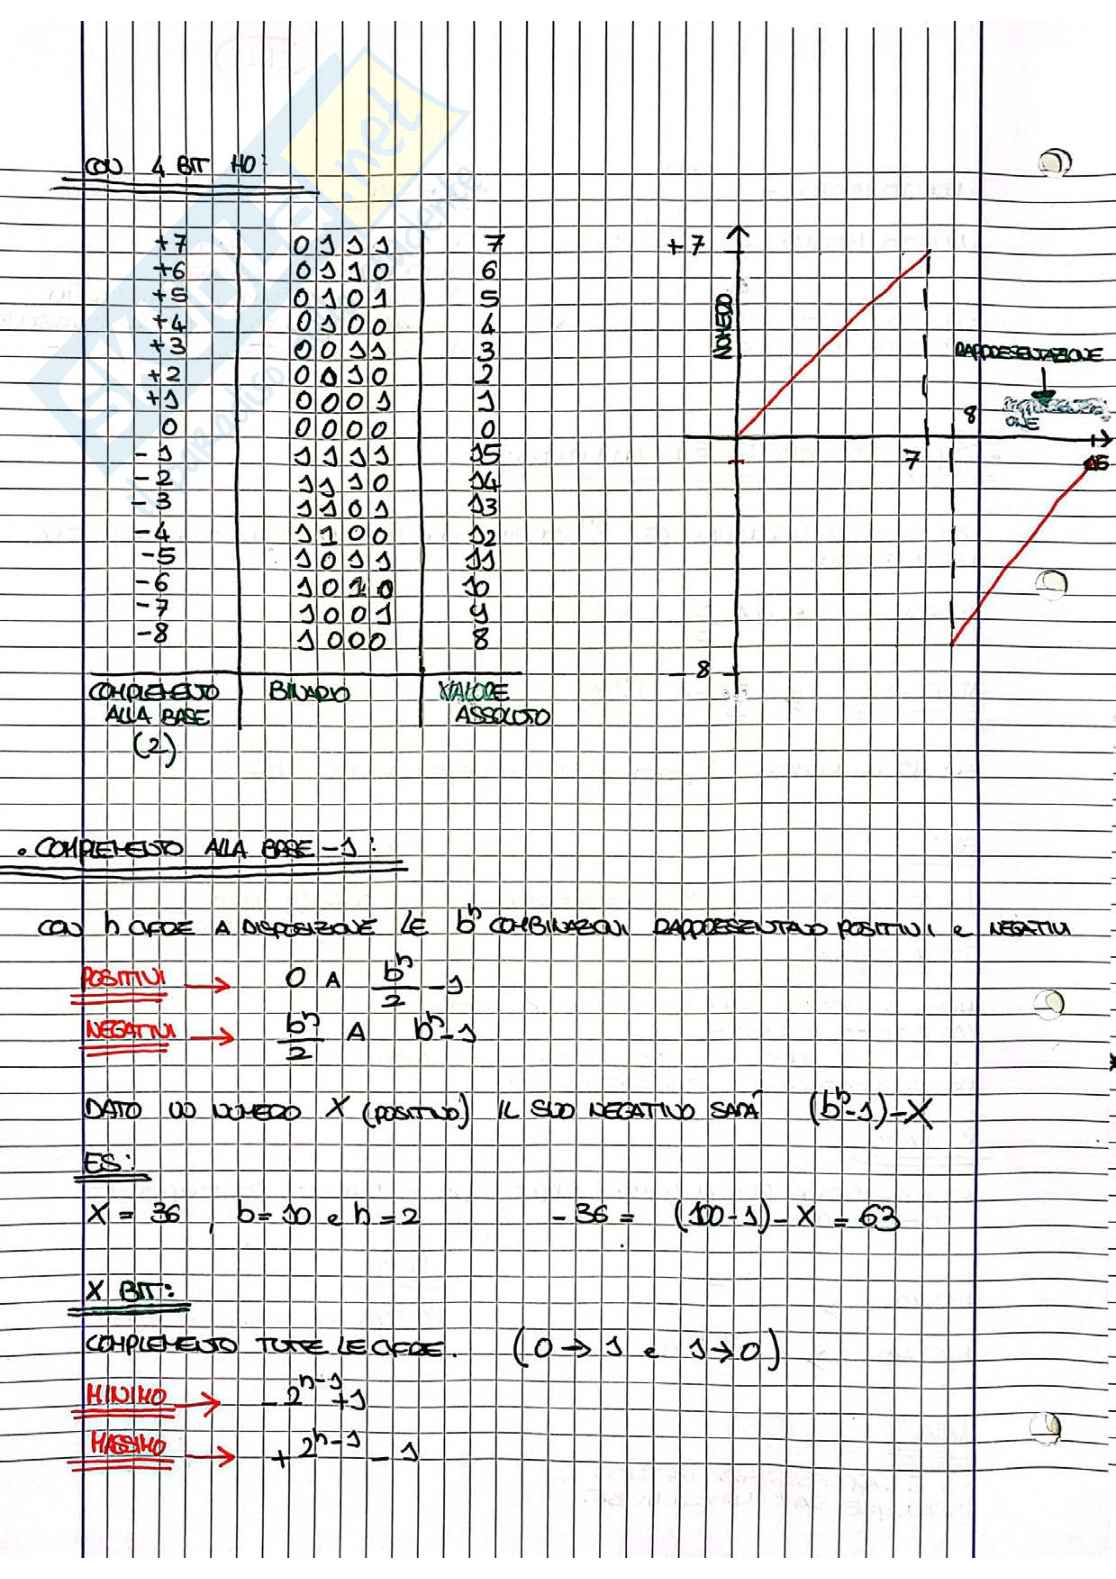 CON 4 BIT HO:
+7 0111 7
+6 0110 6
+5 0101 5
+4 0100 4
+3 0011 3
+2 0010 2
+1 0001 1
0 0000 0
-1 1111 15
-2 1110 14
-3 1101 13
-4 1100 12
-5 1011 11
-6 1010 10
-7 1001 9
-8 1000 8
COMPLEMENTO ALLA BASE (2) BINARIO VALORE ASSOLUTO
+7
NUMERO
RAPPRESENTAZIONE
8
7
15
-8
• COMPLEMENTO ALLA BASE -1:
CON n CIFRE A DISPOSIZIONE LE bⁿ COMBINAZIONI RAPPRESENTANO POSITIVI e NEGATIVI
POSITIVI → 0 A bⁿ/2 - 1
NEGATIVI → bⁿ/2 A bⁿ-1
DATO UN NUMERO X (POSITIVO) IL SUO NEGATIVO SARÀ (bⁿ-1)-X
ES:
X = 36 , b=10 e n=2 -36 = (100-1)-X = 63
X BIT:
COMPLEMENTO TUTTE LE CIFRE. (0→1 e 1→0)
MINIMO → -2ⁿ⁻¹+1
MASSIMO → +2ⁿ⁻¹-1